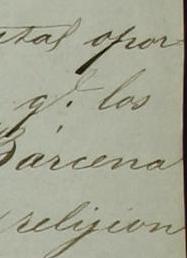 tal opor
qᵉ. los
Bárcena
religion